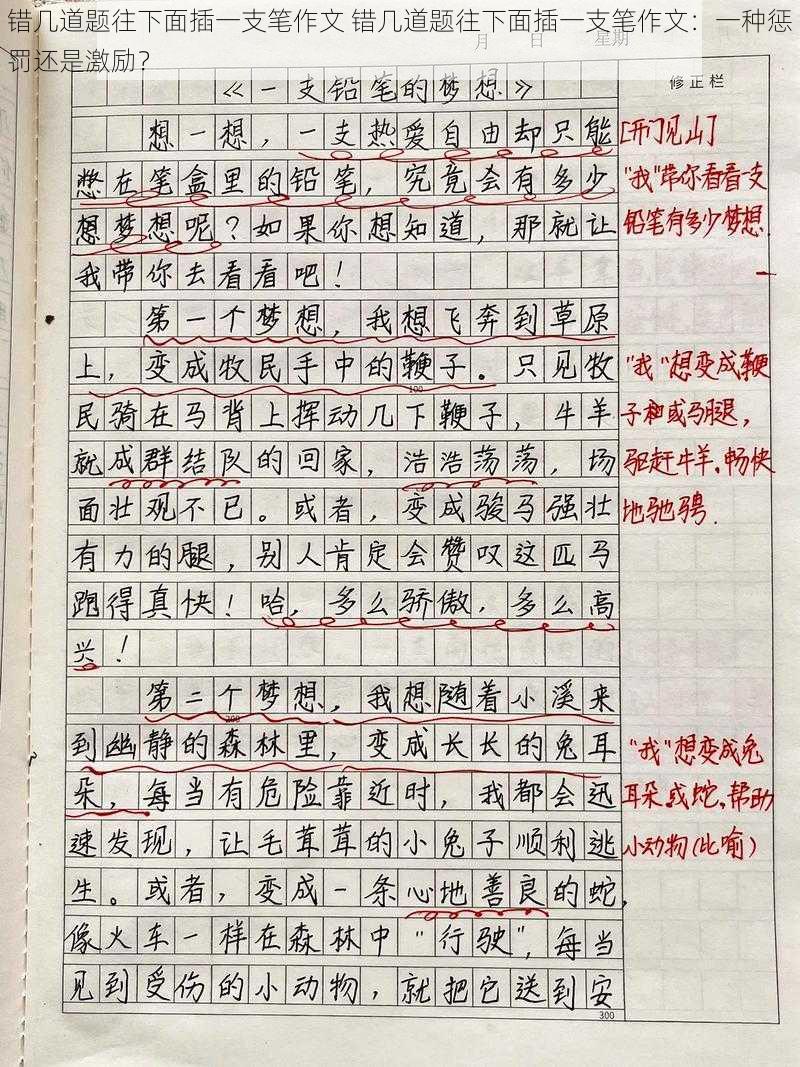 错几道题往下面插一支笔作文 错几道题往下面插一支笔作文：一种惩
罚还是激励？
月 日 星期
修正栏
《一支铅笔的梦想》
想一想，一支热爱自由却只能
憋在笔盒里的铅笔，究竟会有多少
想梦想呢？如果你想知道，那就让
我带你去看看吧！
第一个梦想，我想飞奔到草原
上，变成牧民手中的鞭子。只见牧
100
民骑在马背上挥动几下鞭子，牛羊
就成群结队的回家，浩浩荡荡，场
面壮观不已。或者，变成骏马强壮
有力的腿，别人肯定会赞叹这匹马
跑得真快！哈，多么骄傲，多么高
兴！
第二个梦想，我想随着小溪来
200
到幽静的森林里，变成长长的兔耳
朵，每当有危险靠近时，我都会迅
速发现，让毛茸茸的小兔子顺利逃
生。或者，变成一条心地善良的蛇，
像火车一样在森林中“行驶”，每当
见到受伤的小动物，就把它送到安
300
[开门见山]
“我”带你看看一支
铅笔有多少梦想.
“我”想变成鞭
子和或马腿，
驱赶牛羊，畅快
地驰骋.
“我”想变成兔
耳朵或蛇，帮助
小动物（比喻）